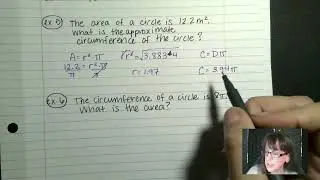 ex 5) The area of a circle is 12.2 m².
What is the approximate
circumference of the circle?
A = r² π √r² = √3.8834 C = Dπ
12.2 = r² · π r = 1.97 C = 3.94π
π π
ex 6) The circumference of a circle is 8π
What is the area?